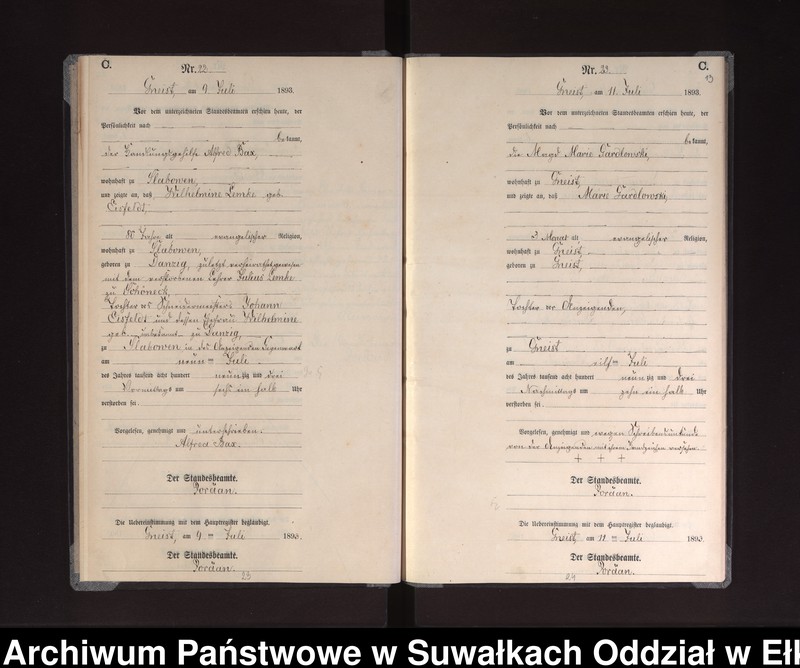 C.
Nr. 22.
Gneist, am 9. Juli 1893.
Vor dem unterzeichneten Standesbeamten erschien heute, der
Persönlichkeit nach
be kannt,
der Handlungsgehilfe Alfred Bax,
wohnhaft zu Slabowen,
und zeigte an, daß Wilhelmine Lemke geb.
Eisfeldt,
80 Jahre alt evangelischer Religion,
wohnhaft zu Slabowen,
geboren zu Danzig, zuletzt verheirathet gewesen
mit dem verstorbenen Lehrer Julius Lemke
zu Schöneck,
Tochter des Schneidermeisters Johann
Eisfeldt und dessen Ehefrau Wilhelmine
geb. unbekannt zu Danzig,
zu Slabowen in des Anzeigenden Gegenwart
am neun ten Juli
des Jahres tausend acht hundert neun zig und drei
Vormittags um sechs ein halb Uhr
verstorben sei.
Vorgelesen, genehmigt und unterschrieben.
Alfred Bax.
Der Standesbeamte.
Jordan.
Die Uebereinstimmung mit dem Hauptregister beglaubigt.
Gneist, am 9 ten Juli 1893.
Der Standesbeamte.
Jordan.
23
C.
13
Nr. 23.
Gneist, am 11. Juli 1893.
Vor dem unterzeichneten Standesbeamten erschien heute, der
Persönlichkeit nach
be kannt,
die Magd Marie Gardlowski,
wohnhaft zu Gneist,
und zeigte an, daß Marie Gardlowski,
3 Monat alt evangelischer Religion,
wohnhaft zu Gneist,
geboren zu Gneist,
Tochter der Anzeigenden,
zu Gneist
am eilf ten Juli
des Jahres tausend acht hundert neun zig und drei
Nachmittags um zehn ein halb Uhr
verstorben sei.
Vorgelesen, genehmigt und wegen Schreibensunkunde
von der Anzeigenden mit ihrem Handzeichen versehen
+ + +
Der Standesbeamte.
Jordan.
Die Uebereinstimmung mit dem Hauptregister beglaubigt.
Gneist, am 11 ten Juli 1893.
Der Standesbeamte.
Jordan.
24
Archiwum Państwowe w Suwałkach Oddział w Eł